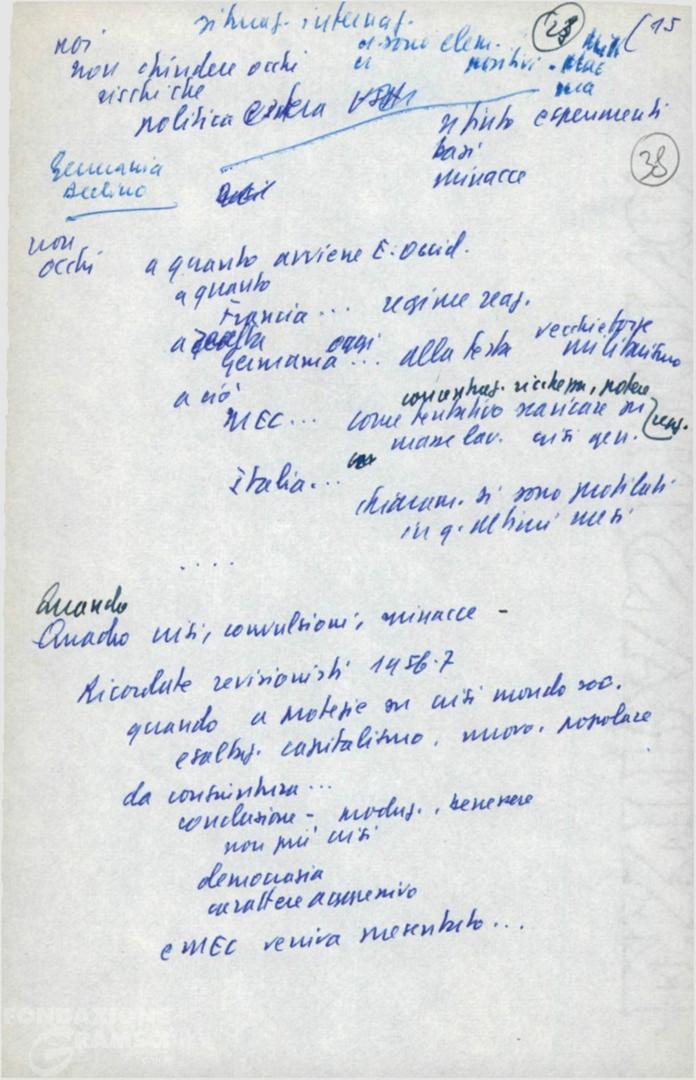 situaz. internaz.
28
(15
noi
ci sono elem.
non chiudere occhi
positivi -
rischi che
ma
politica estera USA
rifiuto esperimenti
basi
38
minacce
Germania
Berlino
non
occhi a quanto avviene E. Occid.
a quanto
Francia ... regime reaz.
a oggi vecchie forze
Germania ... alla testa militarismo
a ciò
concentraz. ricchezza, potere
MEC ... come tentativo scaricare su reaz.
masse lav. crisi gen.
Italia ...
chiaram. si sono profilati
in q. ultimi mesi
....
Quando
Quadro crisi, convulsioni, minacce -
Ricordate revisionisti 1956-7
quando a crisi mondo soc.
esaltaz. capitalismo, nuovo, popolare
da congiuntura ...
conclusione - produz., benessere
non più crisi
democrazia
carattere aggressivo
e MEC veniva presentato ...
FONDAZIONE
GRAMSCI